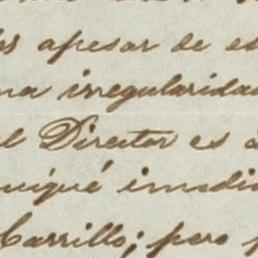 apesar de es
na irregularidad
el Director es a
niqué inmedi
Carrillo; pero p